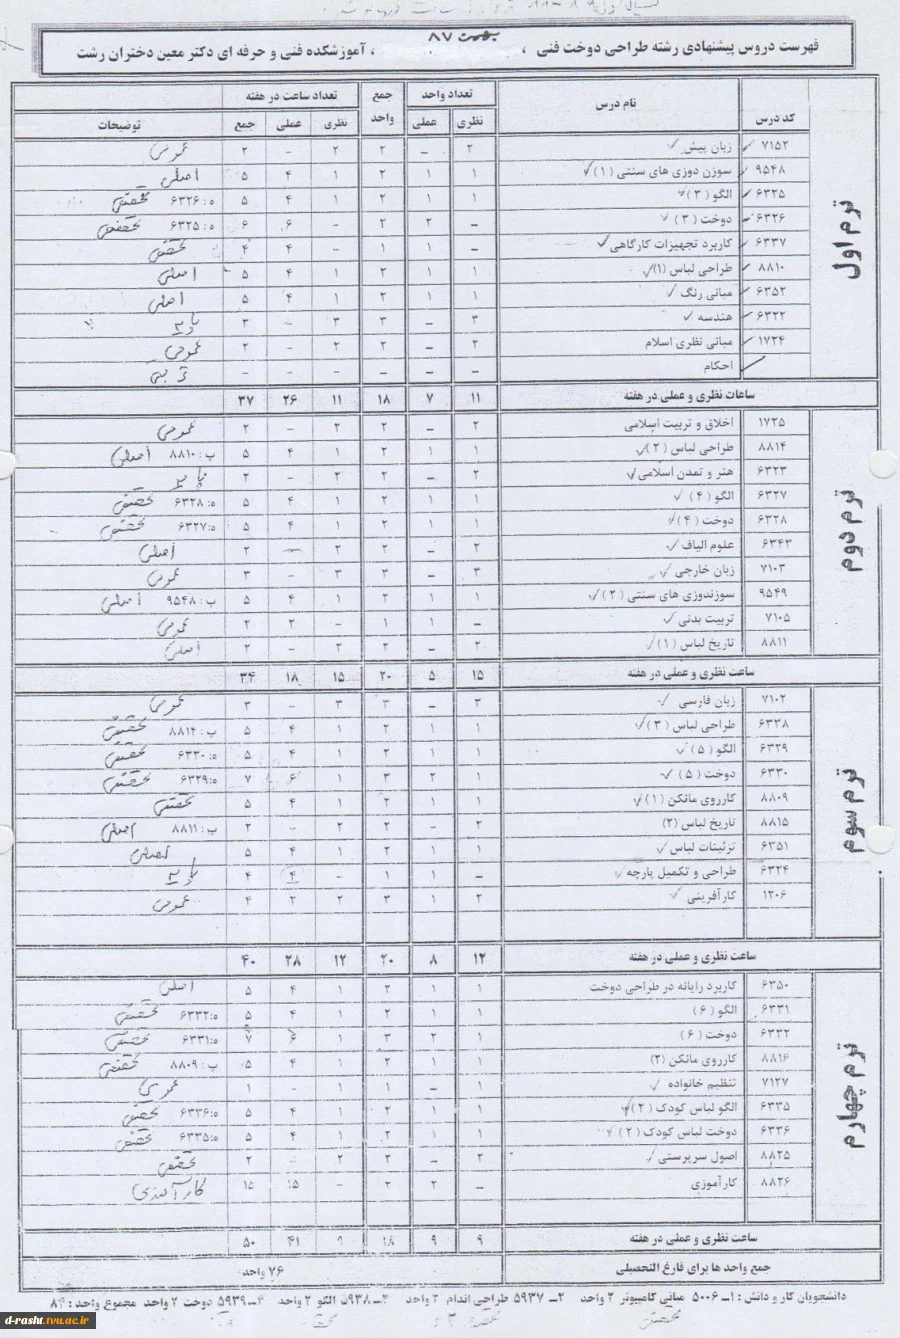 بهمن ۸۷
فهرست دروس پیشنهادی رشته طراحی دوخت فنی ، ، آموزشکده فنی و حرفه ای دکتر معین دختران رشت
ترم اول
کد درس نام درس تعداد واحد جمع واحد تعداد ساعت در هفته توضیحات
نظری عملی نظری عملی جمع
۷۱۵۲ زبان پیش ۲ – ۲ ۲ – ۲ عمومی
۹۵۴۸ سوزن دوزی های سنتی (۱) ۱ ۱ ۲ ۱ ۴ ۵ اصلی
۶۳۲۵ الگو (۳) ۱ ۱ ۲ ۱ ۴ ۵ ه: ۶۳۲۶ تخصصی
۶۳۲۶ دوخت (۳) – ۲ ۲ – ۶ ۶ ه: ۶۳۲۵ تخصصی
۶۳۳۷ کاربرد تجهیزات کارگاهی – ۱ ۱ – ۴ ۴ تخصصی
۸۸۱۰ طراحی لباس (۱) ۱ ۱ ۲ ۱ ۴ ۵ اصلی
۶۳۵۲ مبانی رنگ ۱ ۱ ۲ ۱ ۴ ۵ اصلی
۶۳۲۲ هندسه ۳ – ۳ ۳ – ۳ پایه
۱۷۲۴ مبانی نظری اسلام ۲ – ۲ ۲ – ۲ عمومی
احکام – – – – – –
ساعات نظری و عملی در هفته ۱۱ ۷ ۱۸ ۱۱ ۲۶ ۳۷
ترم دوم
۱۷۲۵ اخلاق و تربیت اسلامی ۲ – ۲ ۲ – ۲ عمومی
۸۸۱۴ طراحی لباس (۲) ۱ ۱ ۲ ۱ ۴ ۵ پ: ۸۸۱۰ اصلی
۶۳۲۳ هنر و تمدن اسلامی ۲ – ۲ ۲ – ۲ پایه
۶۳۲۷ الگو (۴) ۱ ۱ ۲ ۱ ۴ ۵ ه: ۶۳۲۸ تخصصی
۶۳۲۸ دوخت (۴) ۱ ۱ ۲ ۱ ۴ ۵ ه: ۶۳۲۷ تخصصی
۶۳۴۳ علوم الیاف ۲ – ۲ ۲ – ۲ اصلی
۷۱۰۳ زبان خارجی ۳ – ۳ ۳ – ۳ عمومی
۹۵۴۹ سوزندوزی های سنتی (۲) ۱ ۱ ۲ ۱ ۴ ۵ پ: ۹۵۴۸ اصلی
۷۱۰۵ تربیت بدنی – ۱ ۱ – ۲ ۲ عمومی
۸۸۱۱ تاریخ لباس (۱) ۲ – ۲ ۲ – ۲ اصلی
ساعت نظری و عملی در هفته ۱۵ ۵ ۲۰ ۱۵ ۱۸ ۳۴
ترم سوم
۷۱۰۲ زبان فارسی ۳ – ۳ ۳ – ۳ عمومی
۶۳۳۸ طراحی لباس (۳) ۱ ۱ ۲ ۱ ۴ ۵ پ: ۸۸۱۴ تخصصی
۶۳۲۹ الگو (۵) ۱ ۱ ۲ ۱ ۴ ۵ ه: ۶۳۳۰ تخصصی
۶۳۳۰ دوخت (۵) ۱ ۲ ۳ ۱ ۶ ۷ ه: ۶۳۲۹ تخصصی
۸۸۰۹ کارروی مانکن (۱) ۱ ۱ ۲ ۱ ۴ ۵ تخصصی
۸۸۱۵ تاریخ لباس (۲) ۲ – ۲ ۲ – ۲ پ: ۸۸۱۱ اصلی
۶۳۵۱ تزئینات لباس ۱ ۱ ۲ ۱ ۴ ۵ اصلی
۶۳۲۴ طراحی و تکمیل پارچه – ۱ ۱ – ۴ ۴ پایه
۱۲۰۶ کارآفرینی ۲ ۱ ۳ ۲ ۲ ۴ عمومی
ساعت نظری و عملی در هفته ۱۲ ۸ ۲۰ ۱۲ ۲۸ ۴۰
ترم چهارم
۶۳۵۰ کاربرد رایانه در طراحی دوخت ۱ ۱ ۲ ۱ ۴ ۵ اصلی
۶۳۳۱ الگو (۶) ۱ ۱ ۲ ۱ ۴ ۵ ه: ۶۳۳۲ تخصصی
۶۳۳۲ دوخت (۶) ۱ ۲ ۳ ۱ ۶ ۷ ه: ۶۳۳۱ تخصصی
۸۸۱۶ کارروی مانکن (۲) ۱ ۱ ۲ ۱ ۴ ۵ پ: ۸۸۰۹ تخصصی
۷۱۲۷ تنظیم خانواده ۱ – ۱ ۱ – ۱ عمومی
۶۳۳۵ الگو لباس کودک (۲) ۱ ۱ ۲ ۱ ۴ ۵ ه: ۶۳۳۶ تخصصی
۶۳۳۶ دوخت لباس کودک (۲) ۱ ۱ ۲ ۱ ۴ ۵ ه: ۶۳۳۵ تخصصی
۸۸۲۵ اصول سرپرستی ۲ – ۲ ۲ – ۲ تخصصی
۸۸۲۶ کارآموزی – ۲ ۲ – ۱۵ ۱۵ کارآموزی
ساعت نظری و عملی در هفته ۹ ۹ ۱۸ ۹ ۴۱ ۵۰
جمع واحد ها برای فارغ التحصیلی ۷۶ واحد
دانشجویان کار و دانش : ۱ـ ۵۰۰۶ مبانی کامپیوتر ۲ واحد ۲ـ ۵۹۳۷ طراحی اندام ۲ واحد ۳ـ ۵۹۳۸ الگو ۲ واحد ۴ـ ۵۹۳۹ دوخت ۲ واحد مجموع واحد : ۸۴
d-rasht.tvu.ac.ir